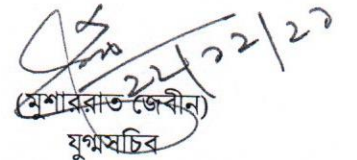 ২২/১২/২১
(মুশাররাত জেবীন)
যুগ্মসচিব